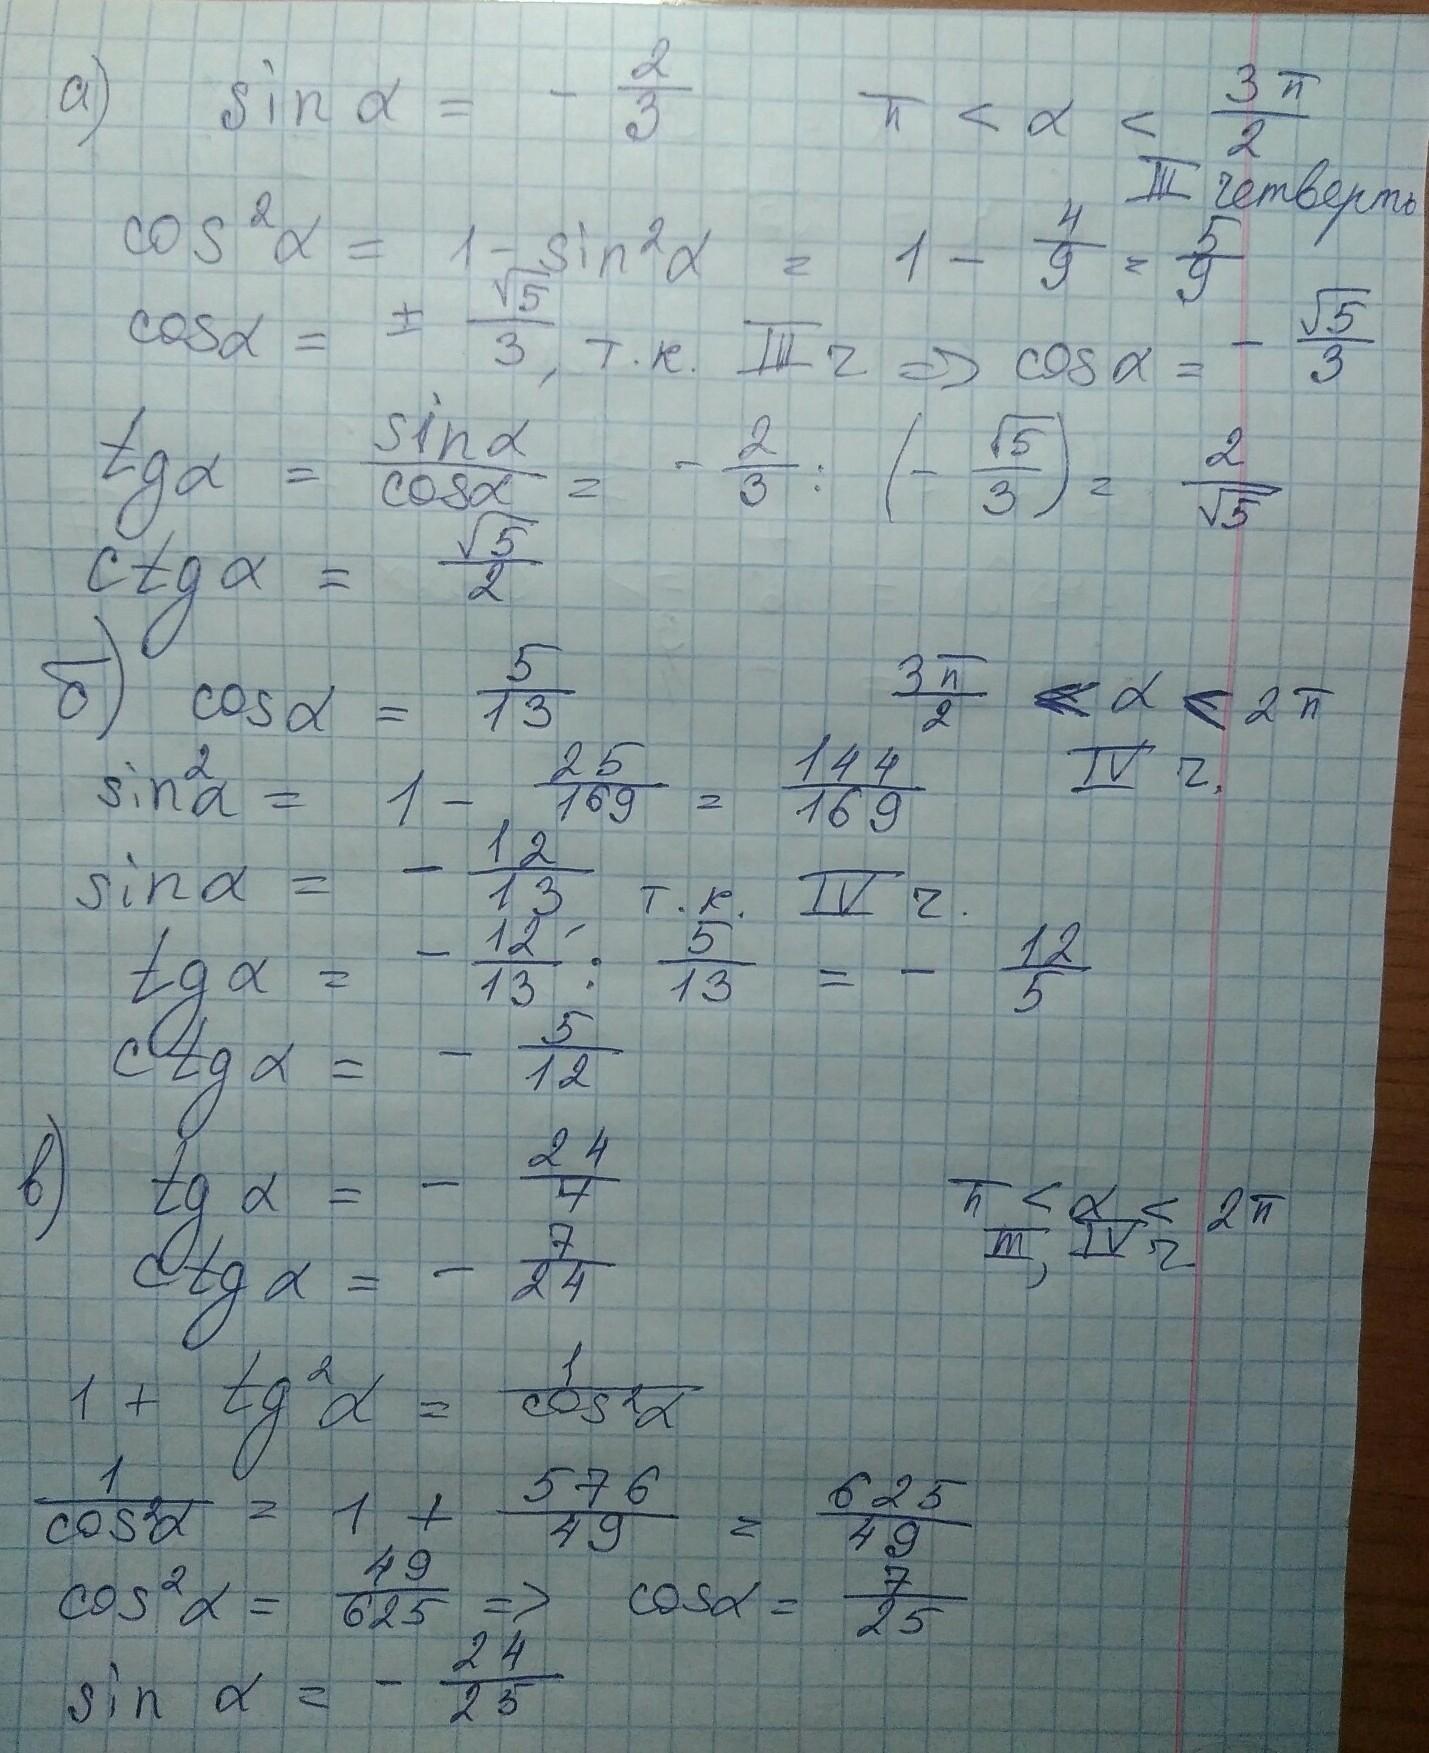 а) sin α = - 2/3   π < α < 3π/2
III четверть
cos²α = 1 - sin²α = 1 - 4/9 = 5/9
cosα = ± √5/3, т.к. III ч => cosα = - √5/3
tgα = sinα/cosα = - 2/3 : (- √5/3) = 2/√5
ctgα = √5/2
б) cosα = 5/13   3π/2 < α < 2π
sin²α = 1 - 25/169 = 144/169   IV ч.
sinα = - 12/13 т.к. IV ч.
tgα = - 12/13 : 5/13 = - 12/5
ctgα = - 5/12
в) tgα = - 24/7   π < α < 2π
ctgα = - 7/24   III, IV ч
1 + tg²α = 1/cos²α
1/cos²α = 1 + 576/49 = 625/49
cos²α = 49/625 => cosα = 7/25
sin α = - 24/25